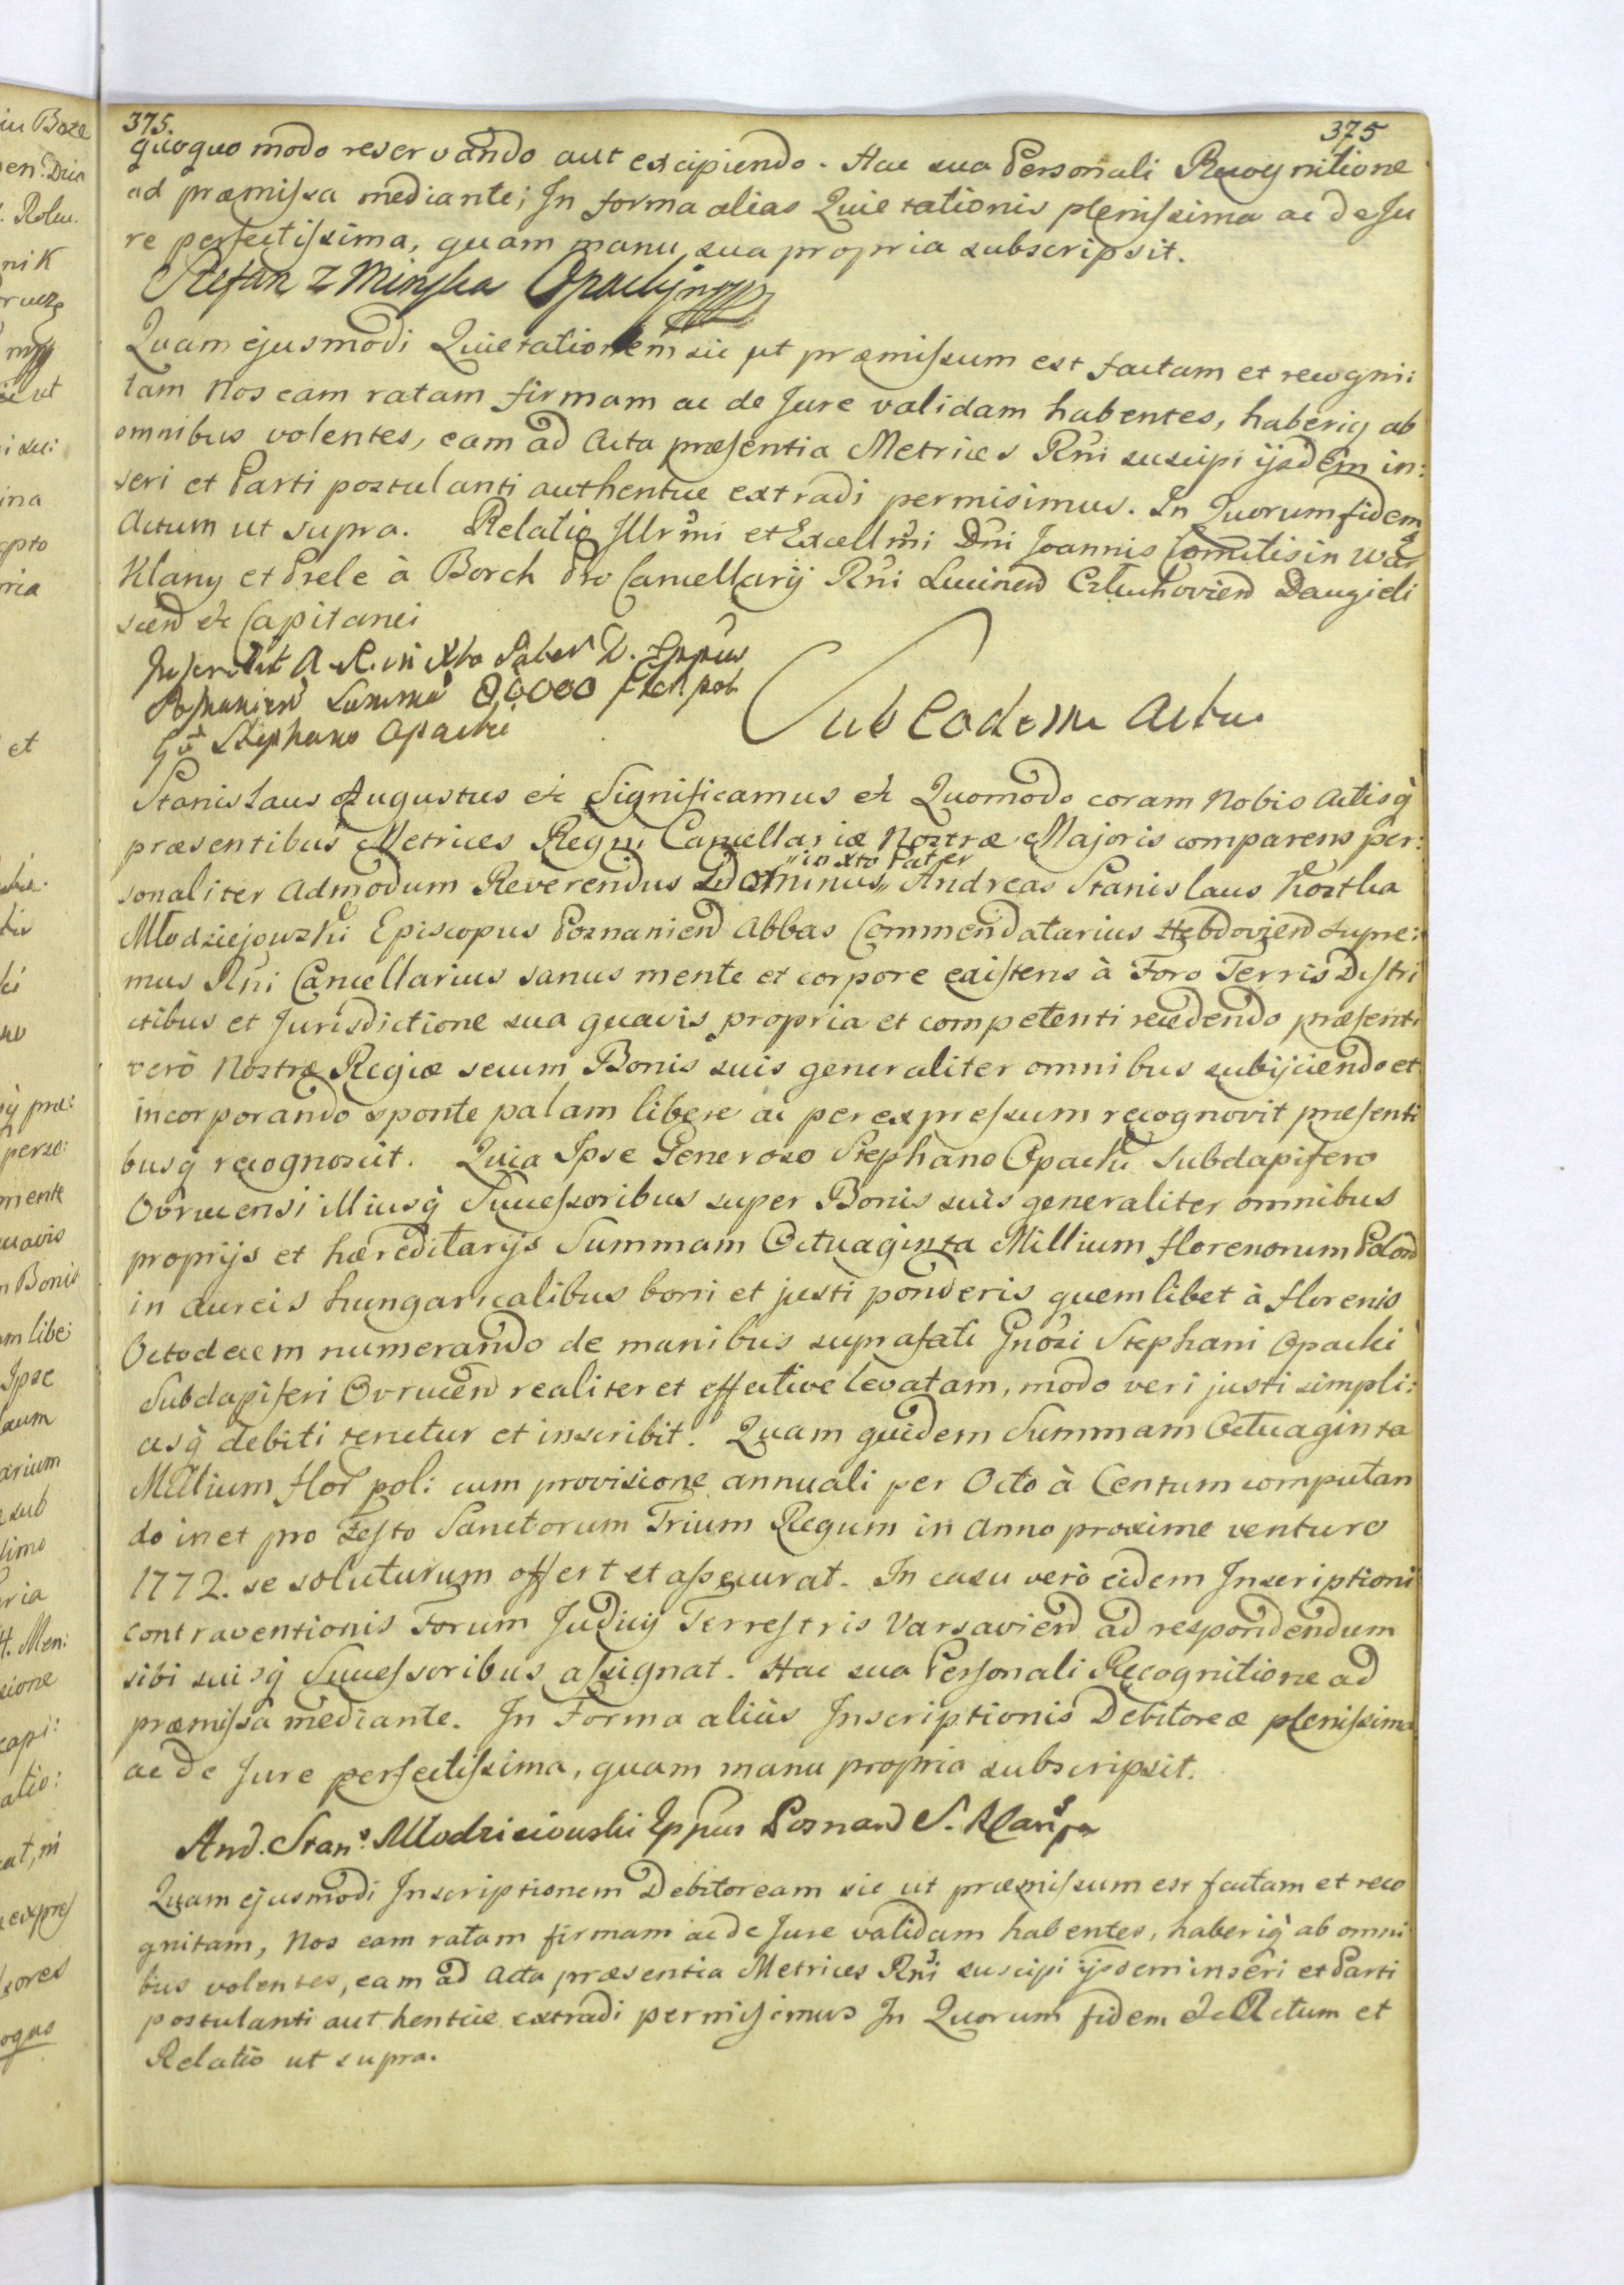 375. 375
quoquo modo reservando aut excipiendo. Hac sua Personali Recognitione
ad præmissa mediante; In forma alias Quietationis plenissima ac de Ju
re perfectissima, quam manu sua propria subscripsit.
Stefan z Minska Opacki mpp
Quam ejusmodi Quietationem sic ut præmissum est factam et recogni:
tam Nos eam ratam firmam ac de Jure validam habentes, haberiq ab
omnibus volentes, eam ad Acta præsentia Metrices Rni suscipi ijsdem in:
seri et Parti postulanti authentice extradi permisimus. In Quorum fidem
Actum ut supra. Relatio Illrmi et Excellmi Dni Joannis Comitis in War
Klany et Prele à Borch Pro Cancellarij Rni Lucinen Czluchovien Daugieli
scen & Capitanei
Inscribit A. R. in Xto Pater D. Eppus
Posnanien Summa 80000 flor. pol.
Gso Stephano Opacki
Sub Eodem Actu
Stanislaus Augustus & Significamus & Quomodo coram Nobis Actisq
præsentibus Metrices Regni Cancellariæ Nostræ Majoris comparens per:
sonaliter Admodum Reverendus Dominus „in Xto Pater„ Andreas Stanislaus Kostka
Młodziejowski Episcopus Poznanien Abbas Commendatarius Hebdovien Supre:
mus Rni Cancellarius sanus mente et corpore existens à Foro Terris Distri
ctibus et Jurisdictione sua quavis propria et competenti recedendo præsenti
verò Nostræ Regiæ secum Bonis suis generaliter omnibus subijciendo et
incorporando sponte palam libere ac per expressum recognovit præsenti
busq recognoscit. Quia Ipse Generoso Stephano Opacki Subdapifero
Ovrucensi illiusq Successoribus super Bonis suis generaliter omnibus
proprijs et hæreditarijs Summam Octuaginta Millium florenorum Polon
in aureis hungaricalibus boni et justi ponderis quemlibet à florenis
Octodecem numerando de manibus suprafati Gnosi Stephani Opacki
Subdapiferi Ovrucen realiter et effective levatam, modo veri justi simpli:
cisq debiti tenetur et inscribit. Quam quidem Summam Octuaginta
Millium flor pol: cum provisione annuali per Octo à Centum computan
do in et pro Festo Sanctorum Trium Regum in Anno proxime venturo
1772. se soluturum offert et assecurat. In casu verò eidem Inscriptioni
contraventionis Forum Judicij Terrestris Varsavien ad respondendum
sibi suisq Successoribus assignat. Hac sua Personali Recognitione ad
præmissa mediante. In Forma aliùs Inscriptionis Debitoreæ plenissima
ac de Jure perfectissima, quam manu propria subscripsit.
And. Stans. Młodzieiowski Eppus Posnan S.
Quam ejusmodi Inscriptionem Debitoream sic ut præmissum est factam et reco
gnitam, Nos eam ratam firmam ac de Jure validam habentes, haberiq ab omni
bus volentes, eam ad Acta præsentia Metrices Rni suscipi ijsdem inseri et Parti
postulanti authentice extradi permisimus In Quorum fidem & Actum et
Relatio ut supra.